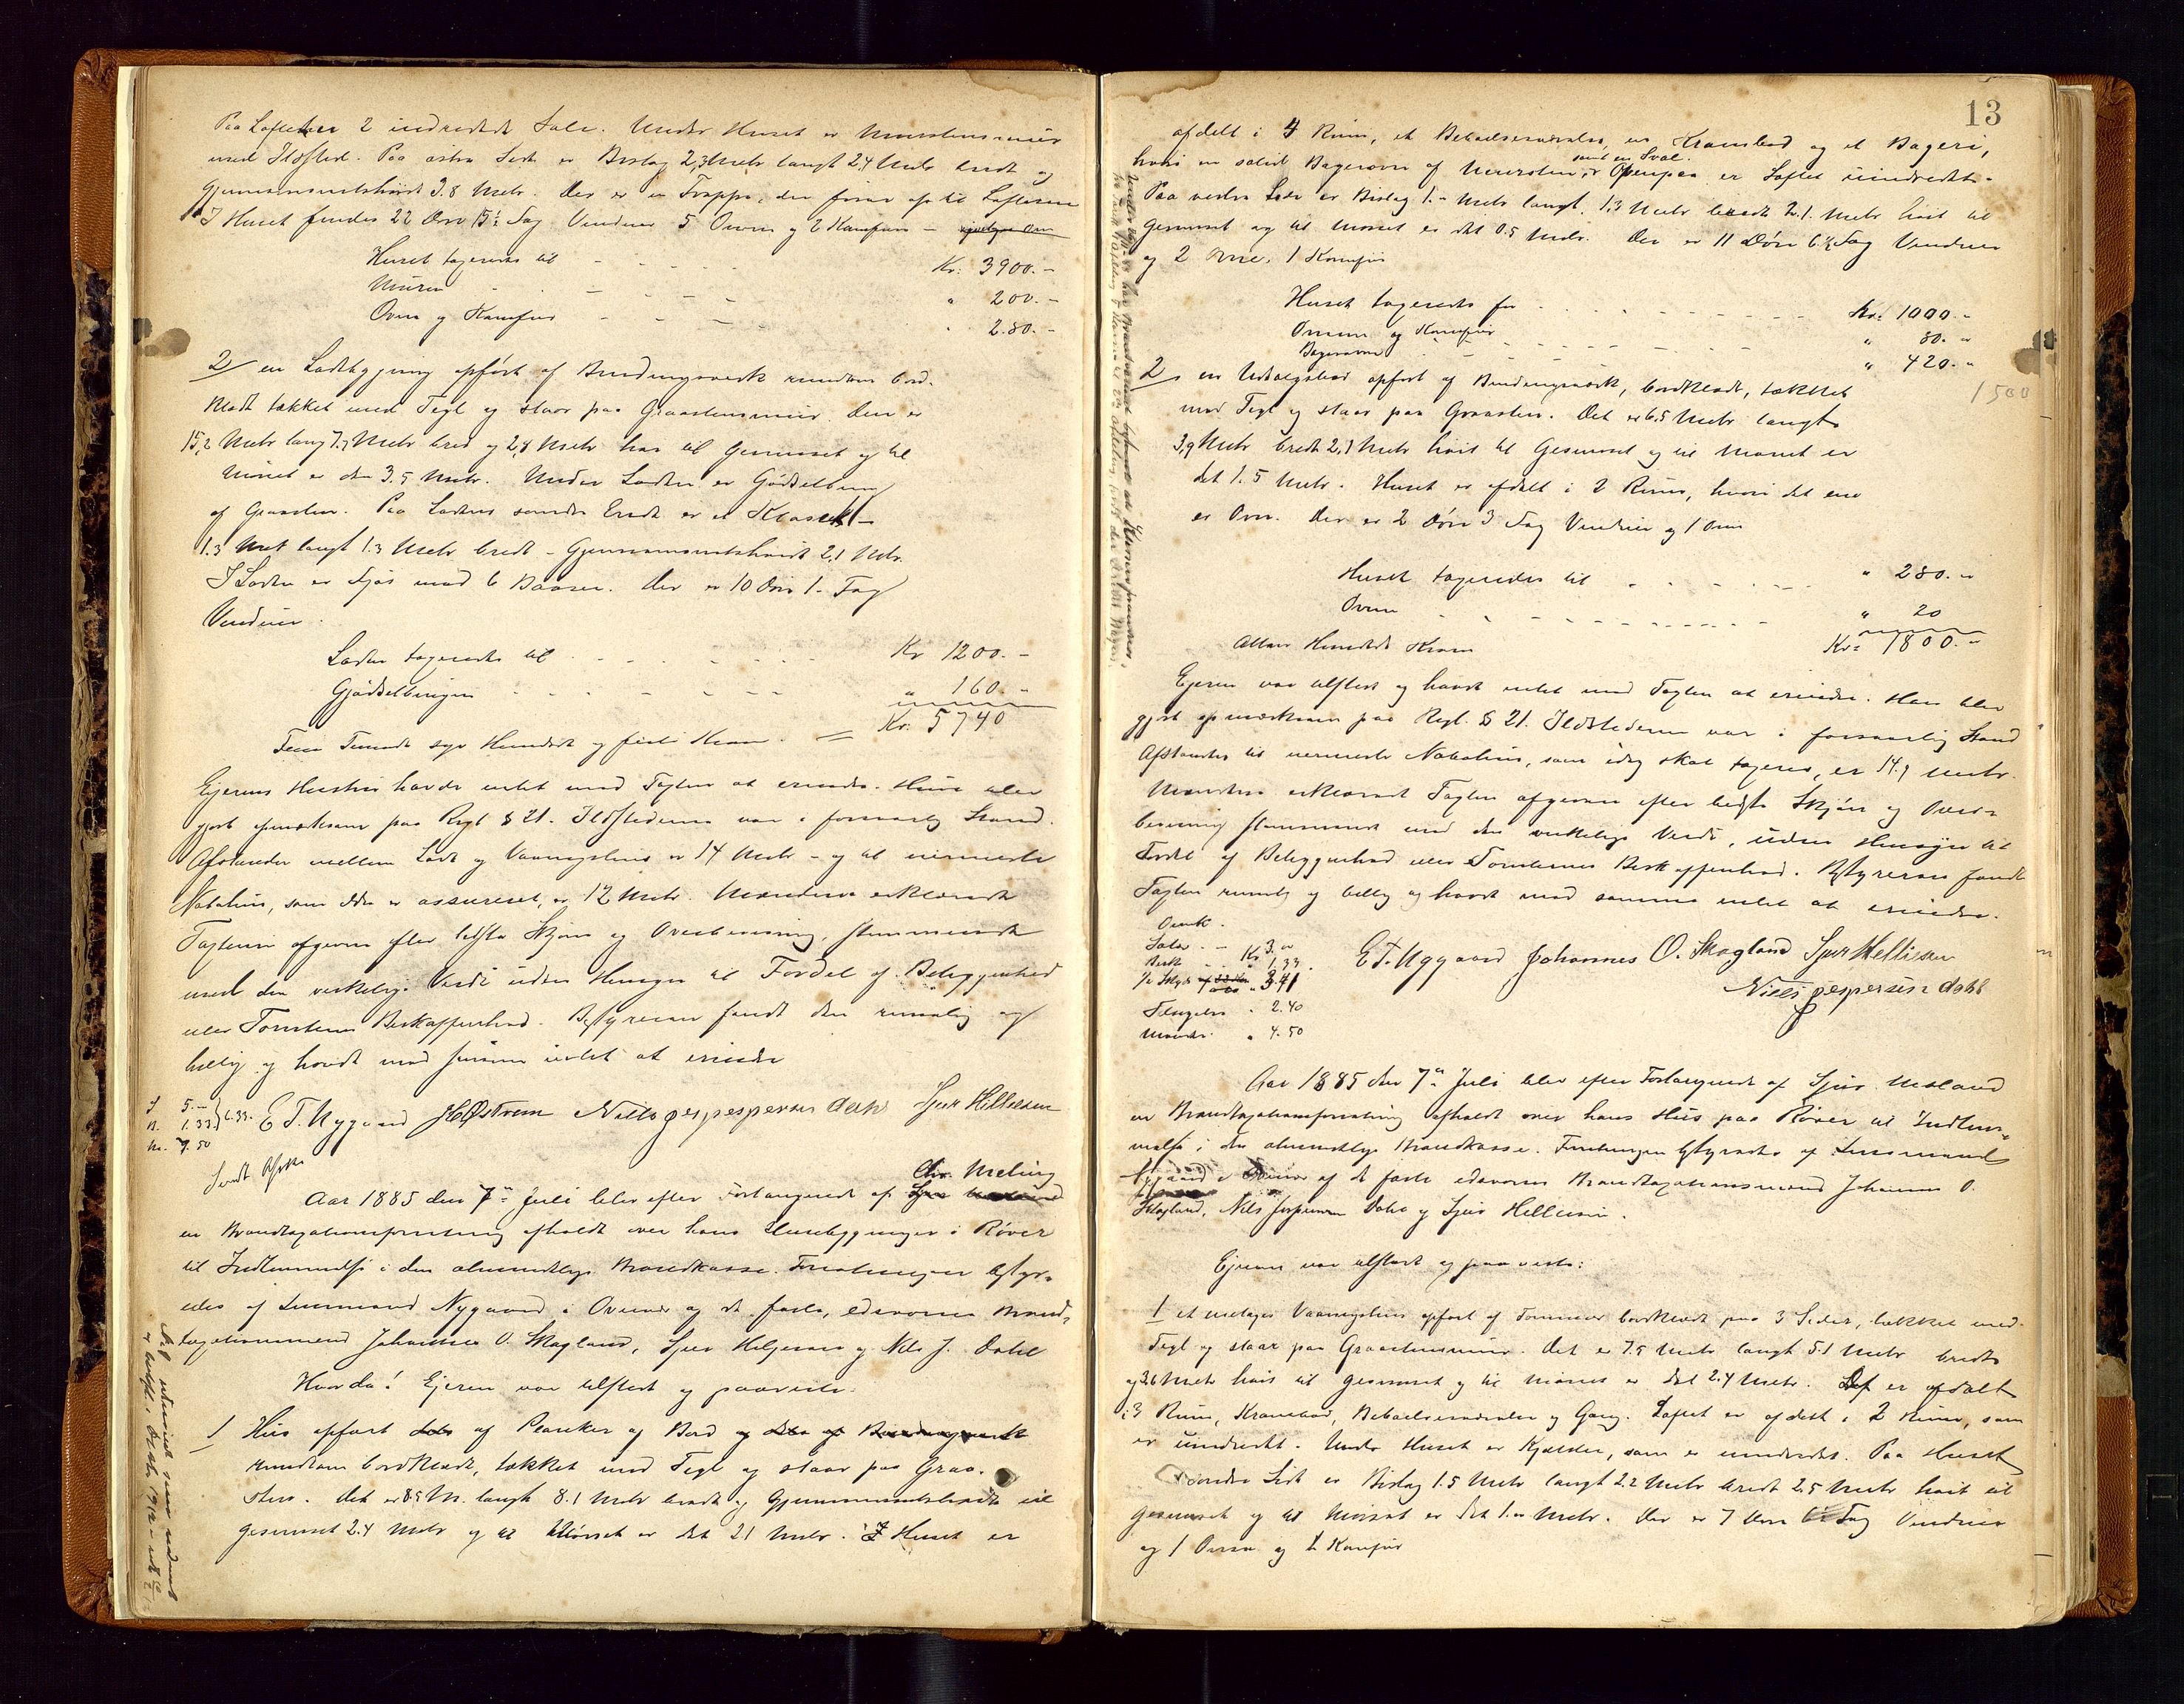 Paa Loftet er 2 indredede Sale. Under Huset er Murstensmur
med Ildsted. Paa østre Side er Bislag 2,3 Meter langt 2.4 Meter bredt og
Gjennemsnitshøide 3.8 Meter. Der er en Trappe, der fører op til Loftet
I Huset findes 22 Døre 15½ Fag Vinduer 5 Ovne og 2 Komfurer
Huset taxeredes til Kr. 3900.-
Muren " 200.-
Ovne og Komfur " 280.-
2/ en Ladebygning opført af Bindingsverk rundtom bord-
klædt tækket med Tegl og staar paa Graastensmur. Den er
15,2 Meter lang 7.7 Meter bred og 2,8 Meter høi til Gesimset og til
Mønet er den 3.5 Meter. Under Laden er Gjødselbinge
af Graasten. Paa Ladens søndre Ende er et Kloset
1.3 Met langt 1.3 Meter bredt - Gjennemsnitshøide 2,1 Meter.
I Laden er Fjøs med 6 Baase. Der er 10 Døre 1- Fag
Vinduer.
Laden taxeredes til Kr 1200.-
Gjødselbingen " 160.-
Fem Tusinde syv Hundrede og firti Kroner = Kr. 5740
Ejerens Hustru havde intet mod Taxten at erindre. Hun blev
gjort opmærksom paa Regl § 21. Ildstederne var i forsvarlig Stand.
Afstanden mellem Lade og Vaaningshus er 14 Meter - og til nærmeste
Nabohus, som ikke er assureret, er 12 Meter. Mændene erklærede
Taxterne afgivne efter bedste Skjøn og Overbevisning, stemmende
med den virkelige Verdi uden Hensyn til Fordel af Beliggenhed
eller Tomtens Beskaffenhed. Bestyreren fandt den rimelig og
billig og havde mod samme intet at erindre
S. 5.-
B. 1.33 6.33. E T. Nygaard HØstrem Nils Jespersen dahl Sjur Hellesen
M. 7.50
Sendt Afskr
Chr. Meling
Aar 1885 den 7de Juli blev efter Forlangende af
en Brandtaxationsforretning afholdt over hans Husebygninger i Røver
til Indlemmelse i den almindelige Brandkasse. Forretningen bestyr-
edes af Lensmand Nygaard i Ovenvær og de faste, edsvorne Brand-
taxationsmænd Johannes O. Skogland, Sjur Helgesen og Nils J. Dahl
Hvorda! Ejeren var tilstede og paaviste.
1 Hus opført af Planker og Bord
rundtom bordklædt, tækket med Tegl og staar paa Graa-
sten. Det er 8.5 M. langt 8.1 Meter bredt og Gjennemsnitshøide til
Gesimset 2.4 Meter og til Mønet er det 21 Meter. Huset er
13
afdelt i 4 Rum, et Bebaaelsesværelse, en Krambod og et Bageri,
hvori en solid Bagerovn af Mursten, samt en Sval. Ovenpaa er Loftet uindredt.
Paa vestre Side er Bislag 1.- Meter langt. 1.3 Meter bredt 2.1. Meter høit til
Gesimset og til Mønet er det 0.5 Meter. Der er 11 Døre 6½ Fag Vinduer
og 2 Ovne. 1 Komfur
Huset taxeredes for Kr: 1000.-
Ovnene og Komfur " 80.-
Bagerovn " 420.-
1500
2 en Udsalgsbod opført af Bindingsverk, bordklædt, tækket
med Tegl og staar paa Graasten. Det er 6,5 Meter langt
3,9 Meter bredt 2,1 Meter høit til Gesimset og til Mønet er
det 1.5 Meter. Huset er afdelt i 2 Rum, hvori det ene
er Ovn. Der er 2 Døre 3 Fag Vinduer og 1 Ovn
Huset taxeredes til " 280.-
Ovnen " 20
Atten Hundrede Kroner Kr. 1800.-
Ejeren var tilstede og havde intet mod Taxten at erindre. Han blev
gjort opmærksom paa Regl. § 21. Ildstederne var i forsvarlig Stand
Afstanden til nærmeste Nabohus, som idag skal taxeres, er 14.1 Meter.
Mændene erklærede Taxten afgiven efter bedste Skjøn og Over-
bevisning stemmende med den virkelige Verdi, uden Hensyn til
Fordel af Beliggenhed eller Tomternes Beskaffenhed. Bestyreren fandt
Taxten rimelig og billig og havde mod samme intet at erindre.
Salær Kr 3.-
" 1.33
3.41
" 2.40
" 4.50
E T. Nygaard Johannes O. Skogland Sjur Hellesen
Nils Jespersen dahl
Aar 1885 den 7de Juli blev efter Forlangende af Sjur Mosland
en Brandtaxationsforretning afholdt over hans Hus paa Røver til Indlem-
melse i den almindelige Brandkasse. Forretningen bestyredes af Lensmand
Nygaard i Ovenvær af de faste edsvorne Brandtaxationsmænd Johannes O.
Skogland, Nils Jespersen Dahl og Sjur Hellesen.
Ejeren var tilstede og paaviste:
1 et enetages Vaaningshus opført af Tømmer bordklædt paa 3 Sider, tækket med
Tegl og staar paa Graastensmur. Det er 7.5 Meter langt 5.1 Meter bredt
og 3.6 Meter høit til Gesimset og til Mønet er det 2.4 Meter. Det er afdelt
i 3 Rum, Krambod, Bebaaelsesværelse og Gang. Loftet er afdelt i 2 Rum, som
er uindredt. Under Huset er Kjælder, som er uindredet. Paa Huset
søndre Side er Bislag 1.5 Meter langt 2.2 Meter bredt 2.5 Meter høit til
Gesimset og til Mønet er det 1.- Meter. Der er 7 Døre 6½ Fag Vinduer
og 1 Ovn og 1 Komfur